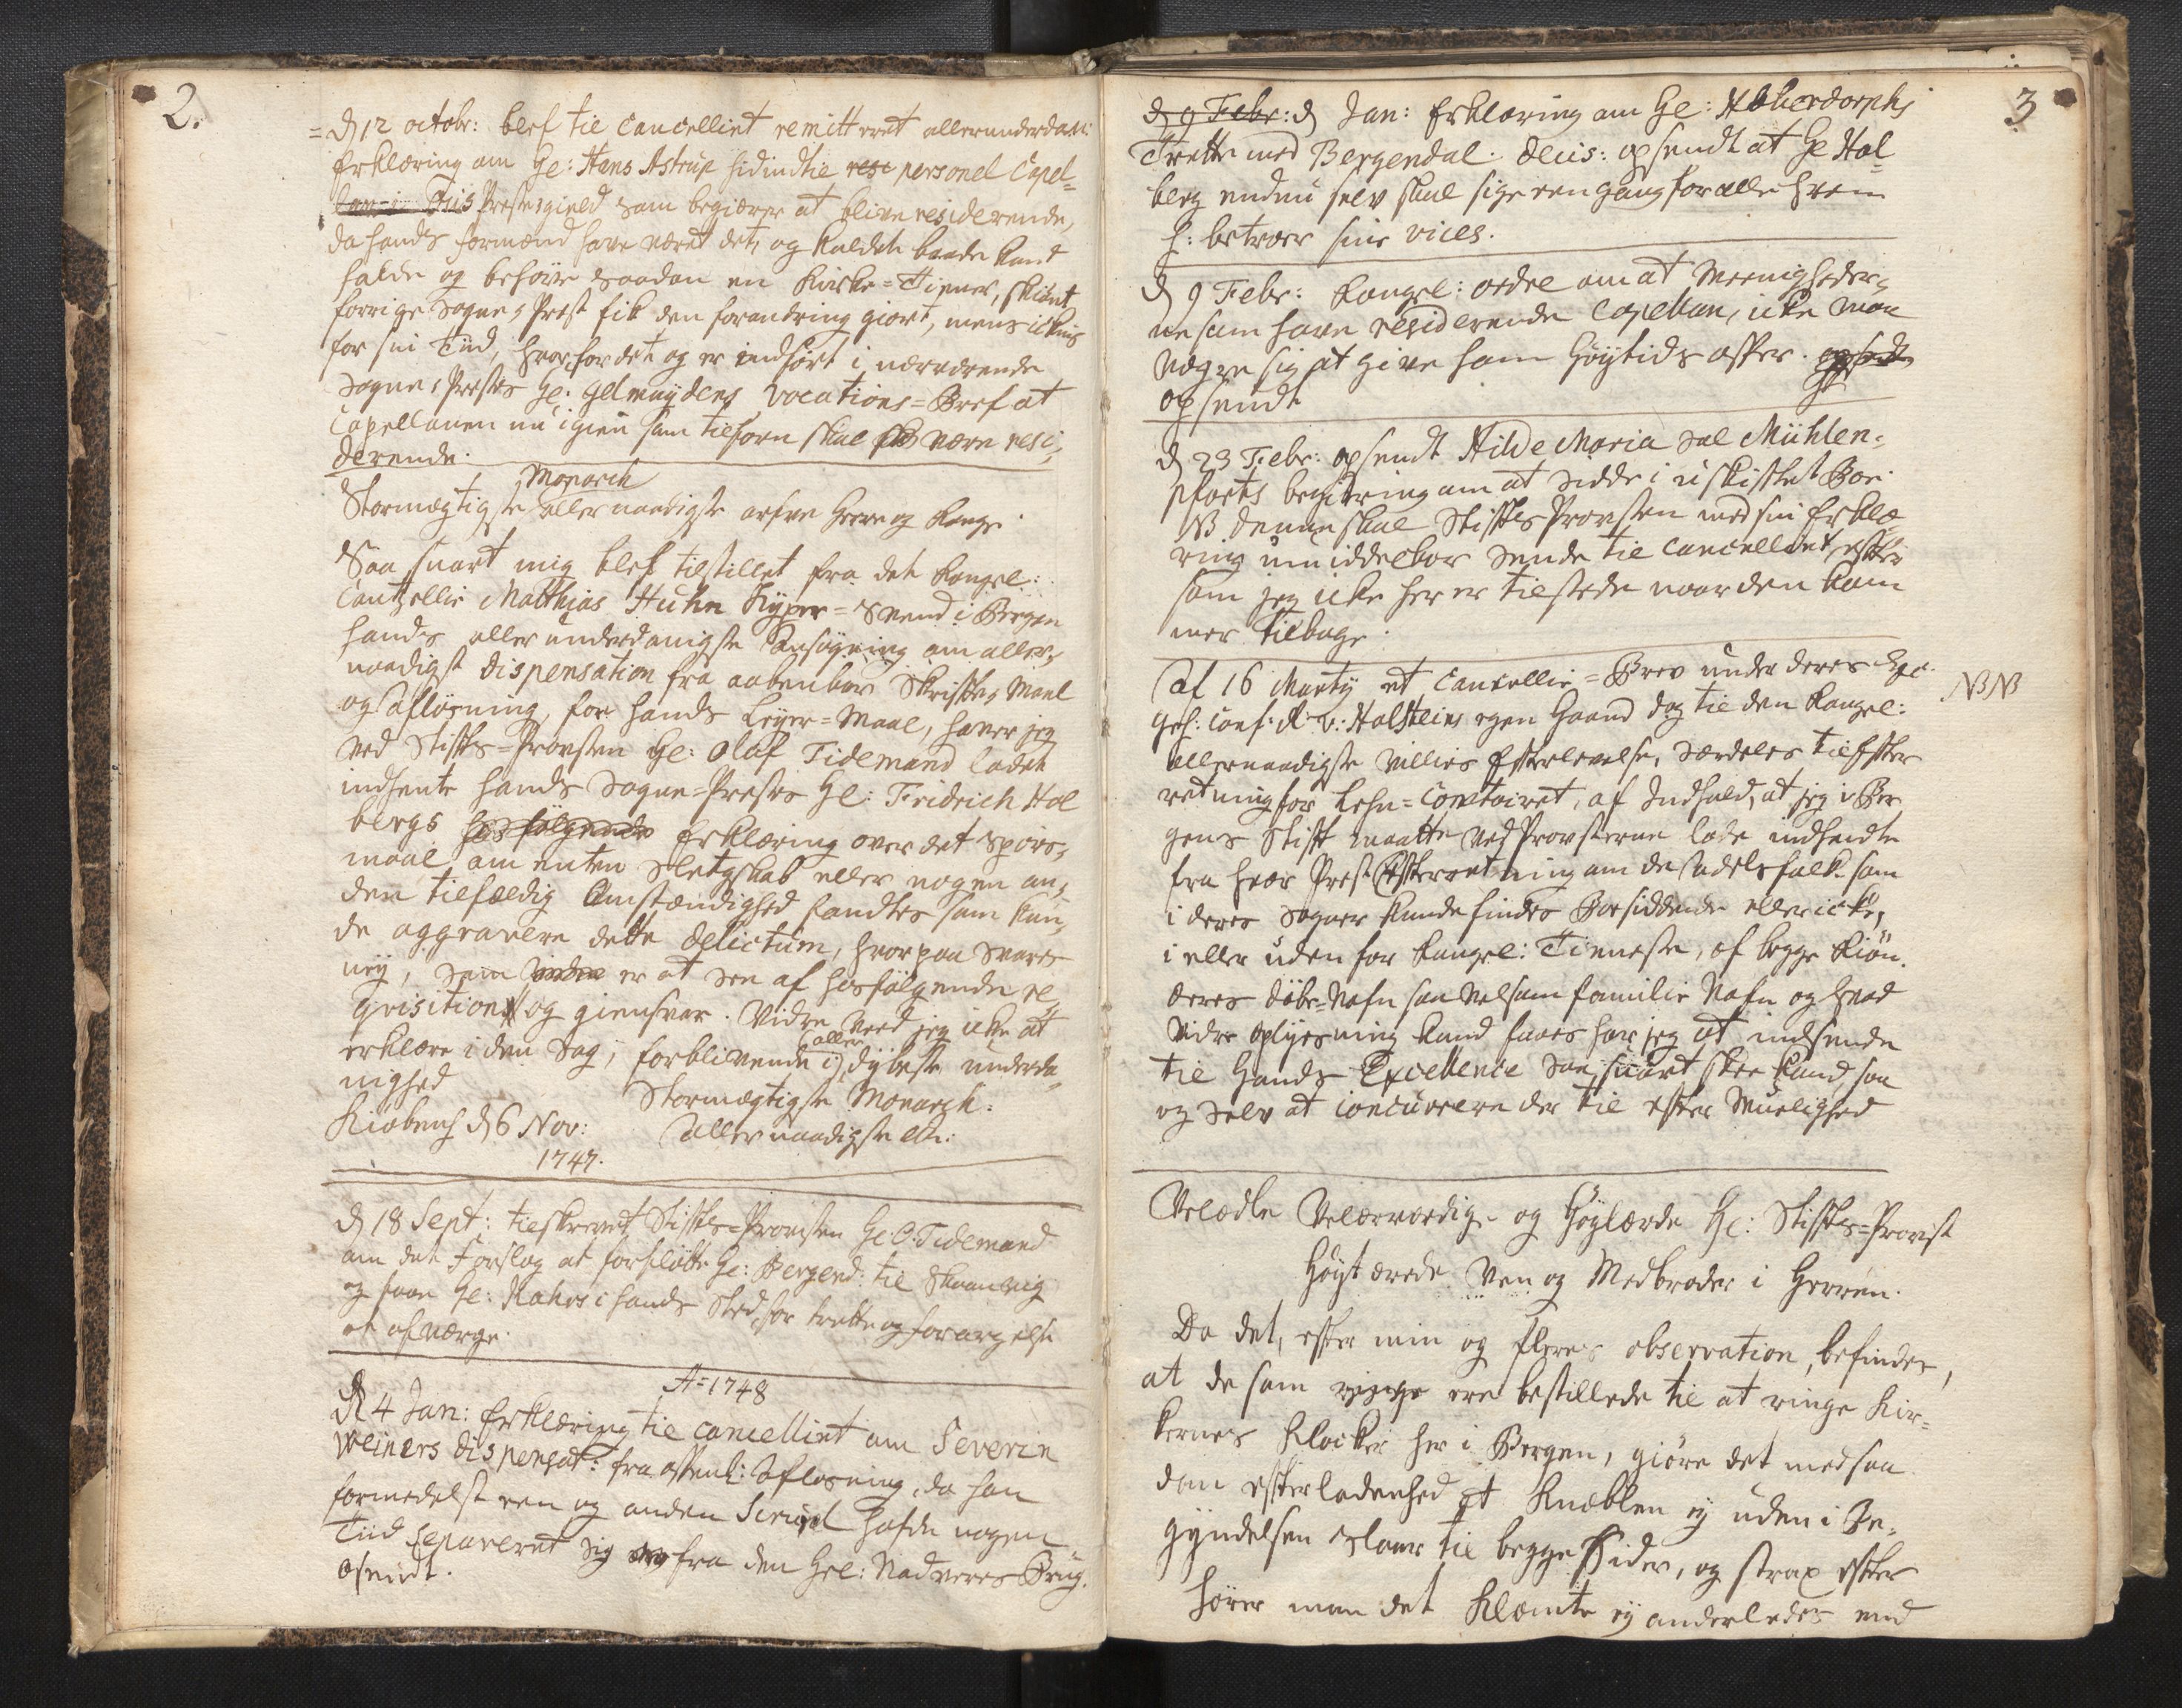 2.
= d 12 octobr: blef til Cancelliet remitteret allerunderdan:
Erklæring om Hr: Hans Astrup hidindtil resi personel Capel-
lan i Fiis Præstegield som begiærer at blive residerende,
da hands formænd have været det, og Kaldet baade kand
holde og behøve saadan en Kirke-Tiener, skiønt
forrige Sogne-Præst fik den forandring giort, mens ickun
for sin Tiid, hvorfor det og er indført i nærværende
Sogne-Præstes Hr: Gelmuydens Vocations-Bref at
Capellanen nu igien som tilforn skal være resi-
derende.
Monarch
Stormægtigste allernaadigste arfve Herre og Konge
Saa snart mig blef tilstillet fra det Kongel:
Cantzellie Matthias Huhn Kyper-Svend i Bergen
hands allerunderdanigste Ansøgning om aller-
naadigst Dispensation fra aabenbar Skrifte-Maal
og Afløsning, for hands Leyer-Maal, haver jeg
ved Stifts-Provsten Hr: Olaf Tidemand ladet
indhente hands Sogne-Præstes Hr: Fridrich Hol
bergs hosfølgende Erklæring over det Spørs-
maal om enten Slegtskab eller nogen an-
den tilfældig Omstændighed fandtes som kun-
de aggravere dette delictum, hvorpaa Svares
ney, som er at see af hosfølgende re-
qvisition og giensvar. Vidre veed jeg icke at
erklære i den Sag, forblivende i aller dybeste underda-
nighed
Stormægtigste Monarch:
Kiøbenh d 6 Nov: Allernaadigste etc:
1747.
d 18 Sept: tilskrevet Stifts-Provsten Hr. O. Tidemand
om det Forslag at forfløtte Hr: Bergend: til Skaanevig
og faae Hr: Rahrs i hands Sted, for trette og forargelse
at afværge.
A=1748
d 4 Jan: Erklæring til Cancelliet om Severin
Weiners dispensat: fra offentl: Afløsning, da han
formedelst een og anden Scrupel hafde nogen
Tiid separeret sig fra den Hel: Nadveres Brug.
afsendt.
3
d 9 Febr: d Jan: Erklæring om Hr: Alberdorphs
Trette med Bergendal. Decis: opsendt at Hr Hol
berg endnu selv skal sige een gang for alle hvem
h: betroer sine vices.
d 9 Febr: Kongel: ordre om at Meenigheder-
ne som have residerende Capellan, icke maa
vægre sig at give ham Høytids offer.
opsendt
d 23 Febr: opsendt Hilde Maria Sal Mühlen-
phorts begiæring om at sidde i uskiftet Boe.
NB denne skal Stiftsprovsten med sin Erklæ-
ring umiddelbar sende til Cancelliet, efter
som jeg icke her er tilstede naar den kom
mer tilbage.
Af 16 Marty et Cancellie-Brev under Deres Exc. NB NB
Geh: Conf: R: v: Holsteins egen Haand dog til den Kongel:
allernaadigste Villies Efterlevelse, Særdeles til Efter
retning for Lehn-Contoiret, af Indhold, at jeg i Ber
gens Stift maatte ved Provsterne lade indhendte
fra hver Præst Efterretning om de Adelsfolk som
i deres Sogner kunde findes Boesiddende eller icke,
i eller uden for Kongel: Tieneste, af begge Kiøn.
deres døbe-Nafn saavelsom familie Nafn og hvad
vidre Oplysning kand faaes har jeg at indsende
til Hands Excellence Saa snart skee kand, saa
og Selv at concurrere der til efter Muelighed
Velædle Velærværdige og Høylærde Hr: Stifts-Provst
Høyt ærede Ven og Medbroder i Herren.
Da det, efter min og fleres observation, befindes,
at de som ringe ere bestillede til at ringe Kir-
kernes Klocker her i Bergen, giøre det med saa
dan efterladenhed at Knæblen ey uden i Be-
gyndelsen Slaaer til begge Sider, og strax efter
hører man det Klemte ey anderledes end